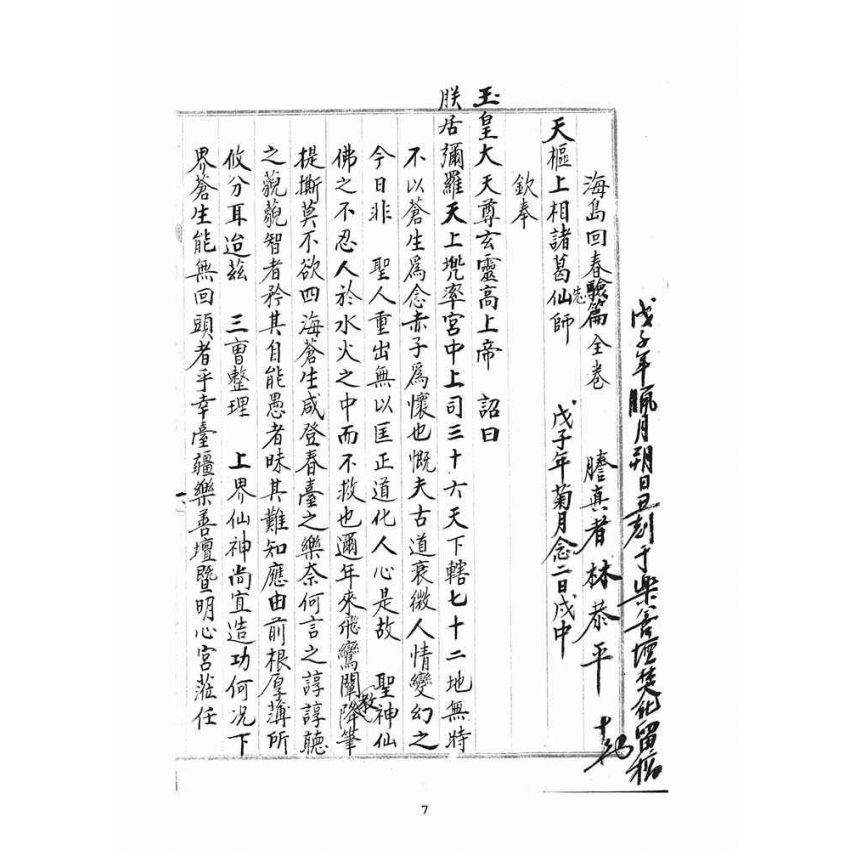 戊子年臘月朔日丑刻于樂善壇焚化留稿
海島回春篇全卷 謄真者林恭平
天樞上相諸葛仙師 戊子年菊月念二日戌中
欽奉
玉皇大天尊玄靈高上帝 詔曰
朕居彌羅天上兜率宮中上司三十六天下轄七十二地無時
不以蒼生為念赤子為懷也慨夫古道衰微人情變幻之
今日非 聖人重出無以匡正道化人心是故 聖神仙
佛之不忍人於水火之中而不救也邇年來飛鸞闡教降筆
提撕莫不欲四海蒼生咸登春臺之樂奈何言之諄諄聽
之藐藐智者矜其自能愚者昧其難知應由前根厚薄所
攸分耳迨茲 三曹整理 上界仙神尚宜造功何況下
界蒼生能無回頭者乎幸臺疆樂善壇暨明心宮蒞任
一
7